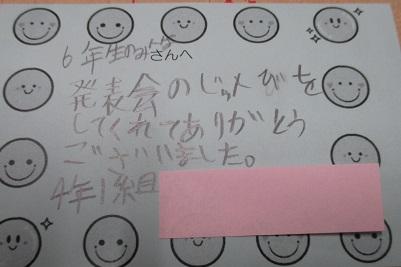 6年生のみなさんへ
発表会のじゅんびを
してくれてありがとう
ございました。
4年1組